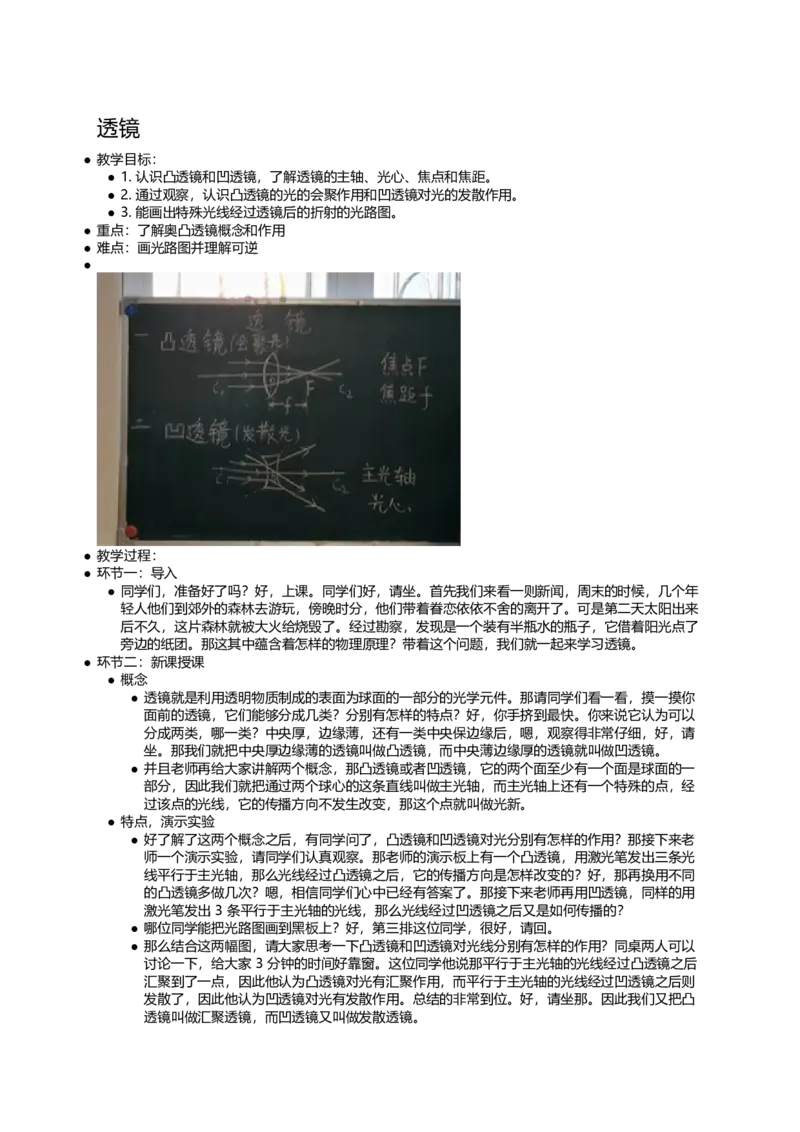 透镜
● 教学目标：
● 1. 认识凸透镜和凹透镜，了解透镜的主轴、光心、焦点和焦距。
● 2. 通过观察，认识凸透镜的光的会聚作用和凹透镜对光的发散作用。
● 3. 能画出特殊光线经过透镜后的折射的光路图。
● 重点：了解奥凸透镜概念和作用
● 难点：画光路图并理解可逆
●
透 镜
一 凸透镜(会聚光)
焦点F
C₁ O F C₂
焦距f
f
二 凹透镜(发散光)
主光轴
C₁ C₂
光心
● 教学过程：
● 环节一：导入
● 同学们，准备好了吗？好，上课。同学们好，请坐。首先我们来看一则新闻，周末的时候，几个年
轻人他们到郊外的森林去游玩，傍晚时分，他们带着眷恋依依不舍的离开了。可是第二天太阳出来
后不久，这片森林就被大火给烧毁了。经过勘察，发现是一个装有半瓶水的瓶子，它借着阳光点了
旁边的纸团。那这其中蕴含着怎样的物理原理？带着这个问题，我们就一起来学习透镜。
● 环节二：新课授课
● 概念
● 透镜就是利用透明物质制成的表面为球面的一部分的光学元件。那请同学们看一看，摸一摸你
面前的透镜，它们能够分成几类？分别有怎样的特点？好，你手挤到最快。你来说它认为可以
分成两类，哪一类？中央厚，边缘薄，还有一类中央保边缘后，嗯，观察得非常仔细，好，请
坐。那我们就把中央厚边缘薄的透镜叫做凸透镜，而中央薄边缘厚的透镜就叫做凹透镜。
● 并且老师再给大家讲解两个概念，那凸透镜或者凹透镜，它的两个面至少有一个面是球面的一
部分，因此我们就把通过两个球心的这条直线叫做主光轴，而主光轴上还有一个特殊的点，经
过该点的光线，它的传播方向不发生改变，那这个点就叫做光新。
● 特点，演示实验
● 好了解了这两个概念之后，有同学问了，凸透镜和凹透镜对光分别有怎样的作用？那接下来老
师一个演示实验，请同学们认真观察。那老师的演示板上有一个凸透镜，用激光笔发出三条光
线平行于主光轴，那么光线经过凸透镜之后，它的传播方向是怎样改变的？好，那再换用不同
的凸透镜多做几次？嗯，相信同学们心中已经有答案了。那接下来老师再用凹透镜，同样的用
激光笔发出 3 条平行于主光轴的光线，那么光线经过凹透镜之后又是如何传播的？
● 哪位同学能把光路图画到黑板上？好，第三排这位同学，很好，请回。
● 那么结合这两幅图，请大家思考一下凸透镜和凹透镜对光线分别有怎样的作用？同桌两人可以
讨论一下，给大家 3 分钟的时间好靠窗。这位同学他说那平行于主光轴的光线经过凸透镜之后
汇聚到了一点，因此他认为凸透镜对光有汇聚作用，而平行于主光轴的光线经过凹透镜之后则
发散了，因此他认为凹透镜对光有发散作用。总结的非常到位。好，请坐那。因此我们又把凸
透镜叫做汇聚透镜，而凹透镜又叫做发散透镜。